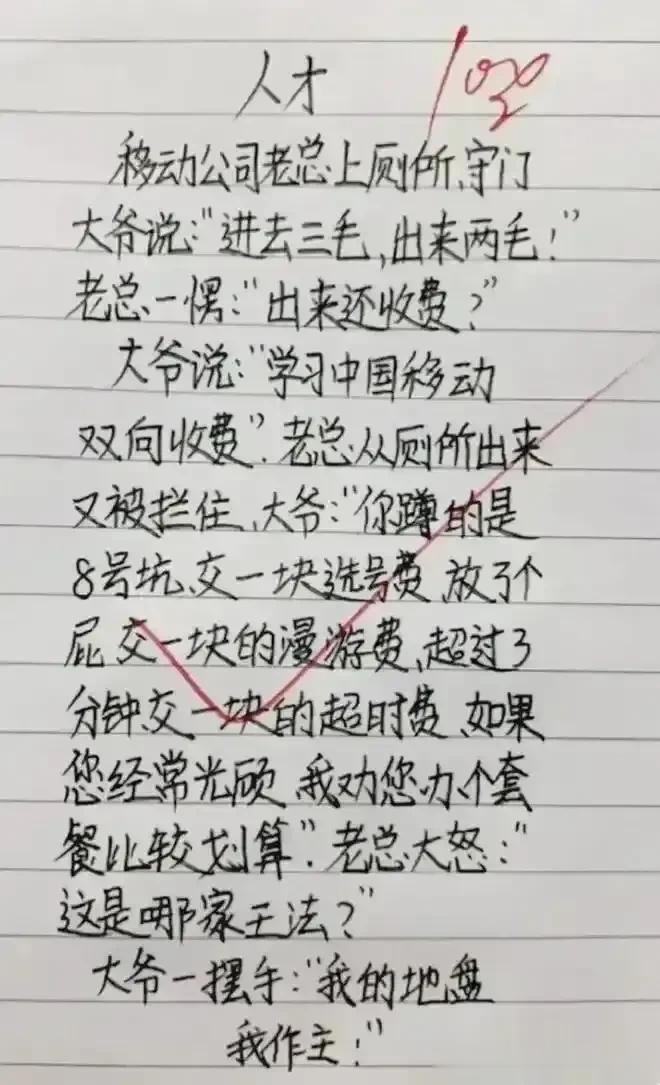 人才
移动公司老总上厕所、守门
大爷说:"进去三毛,出来两毛!"
老总一愣:"出来还收费?"
大爷说:"学习中国移动
双向收费".老总从厕所出来
又被拦住、大爷:"你蹲的是
8号坑、交一块选号费、放了个
屁交一块的漫游费、超过3
分钟交一块的超时费、如果
您经常光顾、我劝您办个套
餐比较划算".老总大怒:"
这是哪家王法?"
大爷一摆手:"我的地盘
我作主!"